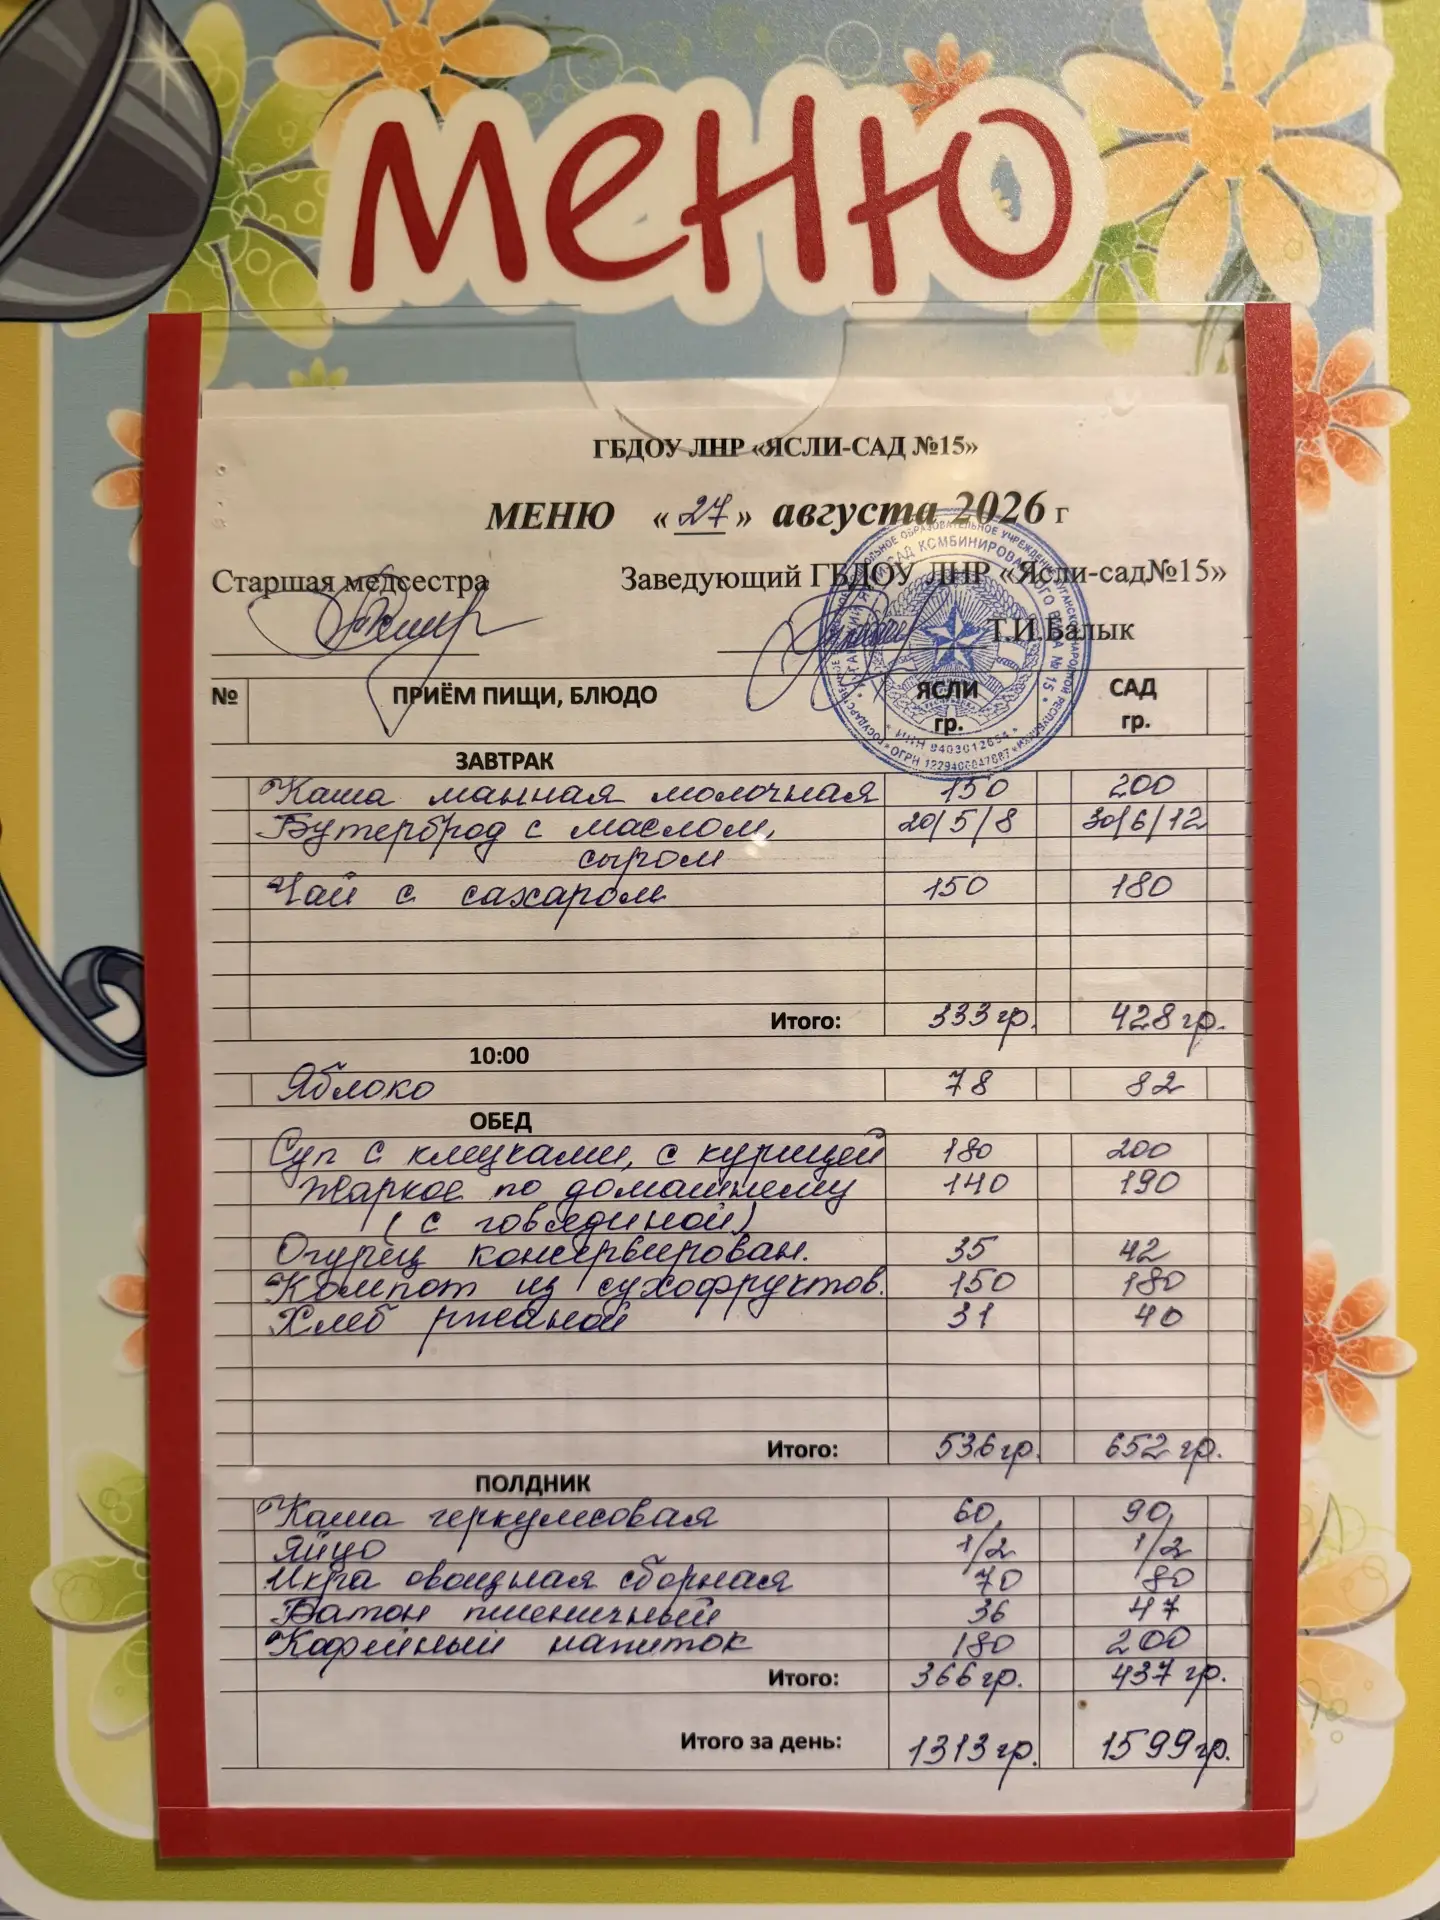 меню
ГБДОУ ЛНР «ЯСЛИ-САД №15»
МЕНЮ « 27 » августа 2026 г
Старшая медсестра Заведующий ГБДОУ ЛНР «Ясли-сад№15»
Т.И.Балык
№ ПРИЁМ ПИЩИ, БЛЮДО ЯСЛИ гр. САД гр.
ИНН 9403012654
ЗАВТРАК
Каша манная молочная 150 200
Бутерброд с маслом, 20/5/8 30/6/12
сыром
Чай с сахаром 150 180
Итого: 333 гр. 428 гр.
10:00
Яблоко 78 82
ОБЕД
Суп с клецками, с курицей 180 200
Жаркое по домашнему 140 190
(с говядиной)
Огурец консервирован. 35 42
Компот из сухофруктов. 150 180
Хлеб ржаной 31 40
Итого: 536 гр. 652 гр.
ПОЛДНИК
Каша геркулесовая 60 90
Яйцо 1/2 1/2
Икра овощная сборная 70 80
Батон пшеничный 36 47
Кофейный напиток 180 200
Итого: 366 гр. 437 гр.
Итого за день: 1313 гр. 1599 гр.